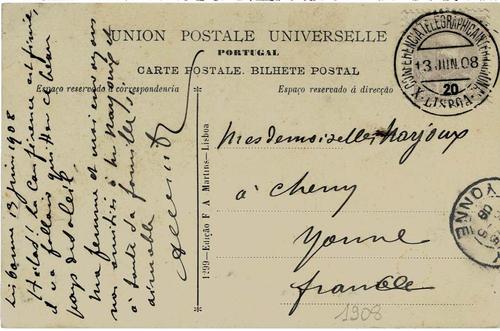 UNION POSTALE UNIVERSELLE
PORTUGAL
CARTE POSTALE. BILHETE POSTAL
Espaço reservado á correspondencia
Espaço reservado á direcção
X CONFERENCIA TELEGRAPHICA INTERNACIONAL
13 JUN. 08
20
LISBOA
Lisbonne 13 juin 1908
Hélas! la conférence est finie,
il va falloir quitter ce beau
pays du soleil.
Ma femme et moi envoyons
nos amitiés à
à toute sa famille si
aimable
1299—Edição F. A. Martins—Lisboa
Mesdemoiselles Marjoux
à Cheny
Yonne
France
YONNE
1908